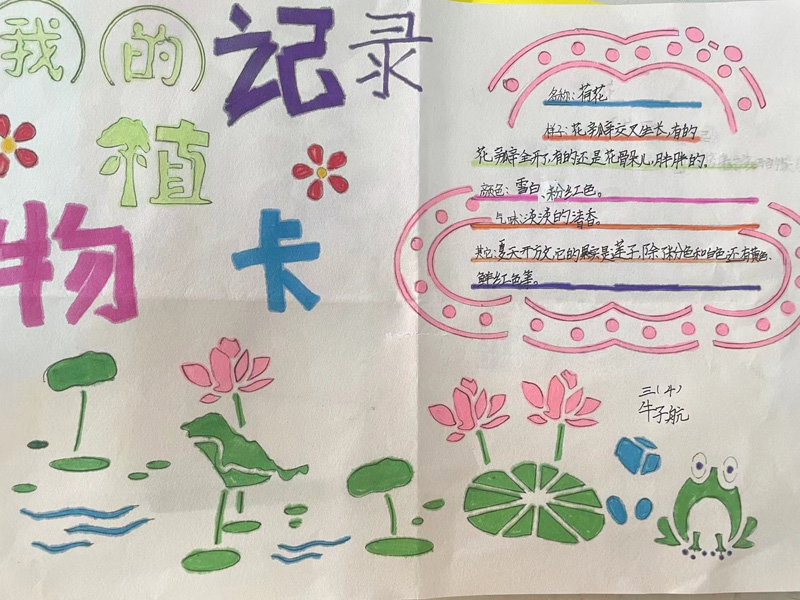 我的记录
植
物 卡
名称:荷花
样子:花瓣交叉生长,有的
花瓣全开了,有的还是花骨朵儿,胖胖的。
颜色:雪白、粉红色。
气味:淡淡的清香。
其它:夏天开放,它的果实是莲子,除了粉色和白色还有黄色、
鲜红色等。
三(4)
牛子航